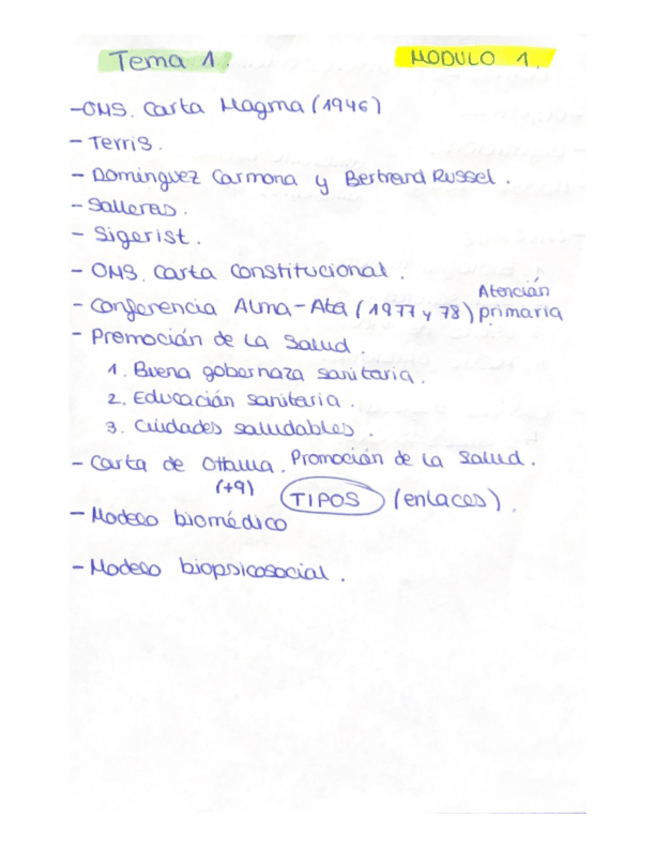 Tema 1. MODULO 1.
-OMS. Carta Magma (1946)
- Terris.
- Dominguez Carmona y Bertrand Russel.
- Salleras.
- Sigerist.
- OMS. Carta Constitucional.
- Conferencia Alma-Ata (1977 y 78) Atención primaria
- Promoción de la Salud.
1. Buena gobernaza sanitaria.
2. Educación sanitaria.
3. Ciudades saludables.
- Carta de Ottawa. Promoción de la Salud.
(+9) TIPOS (enlaces).
- Modelo biomédico
- Modelo biopsicosocial.